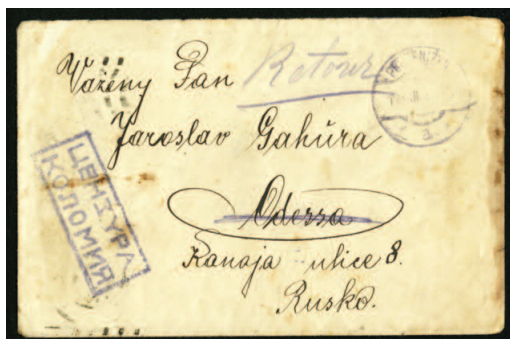 Retour
Vážený Pan
Jaroslav Gahura
Odessa
Kanaja ulice 8.
Rusko.
ЦЕНЗУРА
КОЛОМИЯ